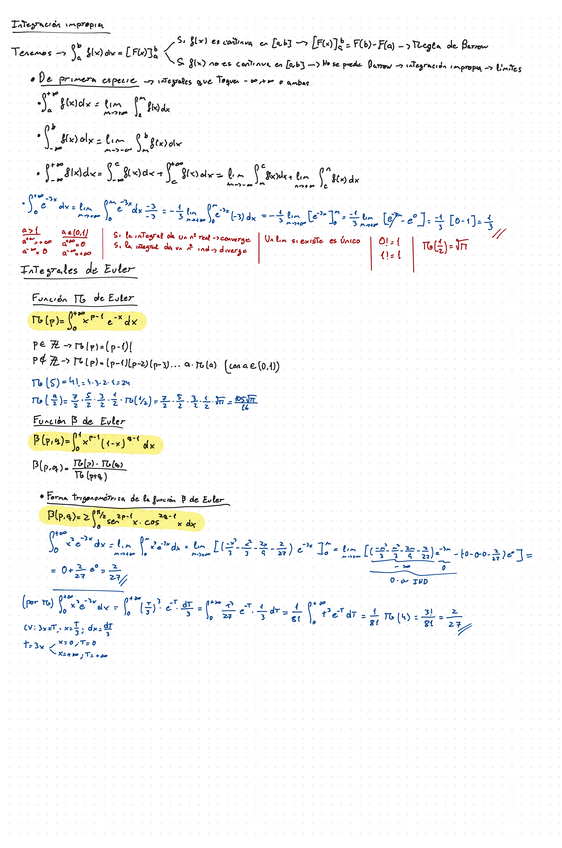 Integración impropia
Tenemos → ∫_a^b f(x)dx = [F(x)]_a^b
Si f(x) es continua en [a,b] → [F(x)]_a^b = F(b)-F(a) → Regla de Barrow
Si f(x) no es continua en [a,b] → No se puede Barrow → integración impropia → límites
• De primera especie → integrales que Toquen -∞, +∞ o ambas
• ∫_a^{+∞} f(x)dx = lim_{m→+∞} ∫_a^m f(x)dx
• ∫_{-∞}^b f(x)dx = lim_{m→-∞} ∫_m^b f(x)dx
• ∫_{-∞}^{+∞} f(x)dx = ∫_{-∞}^c f(x)dx + ∫_c^{+∞} f(x)dx = lim_{m→-∞} ∫_m^c f(x)dx + lim_{n→+∞} ∫_c^n f(x)dx
• ∫_0^{+∞} e^{-3x} dx = lim_{m→+∞} ∫_0^m e^{-3x} dx · -3/-3 = -1/3 lim_{m→+∞} ∫_0^m e^{-3x} (-3) dx = -1/3 lim_{m→+∞} [e^{-3x}]_0^m = -1/3 lim_{m→+∞} [e^{-3m} - e^0] = -1/3 [0-1] = 1/3
a>1 a∈(0,1)
a^{+∞} = +∞ a^{+∞} = 0
a^{-∞} = 0 a^{-∞} = +∞
Si la integral da un nº real → converge
Si la integral da un nº ind → diverge
Un lim si existe es único
0! = 1
1! = 1
Γ(1/2) = √π
Integrales de Euler
Función Γ de Euler
Γ(p) = ∫_0^{+∞} x^{p-1} e^{-x} dx
p ∈ Z → Γ(p) = (p-1)!
p ∉ Z → Γ(p) = (p-1)(p-2)(p-3)... a · Γ(a) (con a ∈ (0,1))
Γ(5) = 4! = 4·3·2·1 = 24
Γ(9/2) = 7/2 · 5/2 · 3/2 · 1/2 · Γ(1/2) = 7/2 · 5/2 · 3/2 · 1/2 · √π = 105√π/16
Función β de Euler
β(p,q) = ∫_0^1 x^{p-1} (1-x)^{q-1} dx
β(p,q) = Γ(p) · Γ(q) / Γ(p+q)
• Forma trigonométrica de la función β de Euler
β(p,q) = 2∫_0^{π/2} sen^{2p-1} x · cos^{2q-1} x dx
∫_0^{+∞} x³ e^{-3x} dx = lim_{m→+∞} ∫_0^m x³ e^{-3x} dx = lim_{m→+∞} [(-x³/3 - x²/3 - 2x/9 - 2/27) e^{-3x}]_0^m = lim_{m→+∞} [(-m³/3 - m²/3 - 2m/9 - 2/27) e^{-3m} - (-0-0-0-2/27) e^0] =
-∞ 0
0·∞ IND
= 0 + 2/27 e^0 = 2/27
(por Γ) ∫_0^{+∞} x³ e^{-3x} dx = ∫_0^{+∞} (T/3)³ · e^{-T} · dT/3 = ∫_0^{+∞} T³/27 e^{-T} · 1/3 dT = 1/81 ∫_0^{+∞} T³ e^{-T} dT = 1/81 Γ(4) = 3!/81 = 2/27
CV: 3x=T; x=T/3; dx=dT/3
T=3x
x=0, T=0
x=+∞, T=+∞